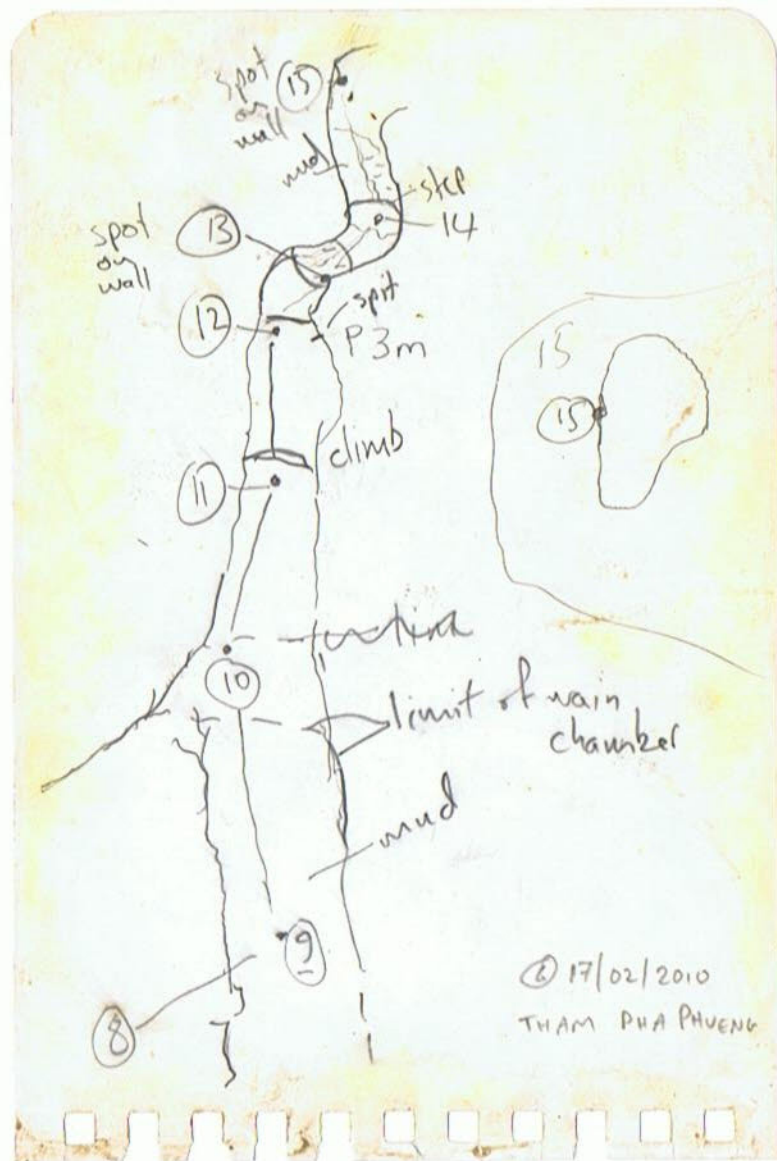 spot
on
wall
15
mud
step
14
13
spot
on
wall
12
spit
P3m
15
15
climb
11
10
limit of main
chamber
mud
9
8
17/02/2010
THAM PHA PHUENG